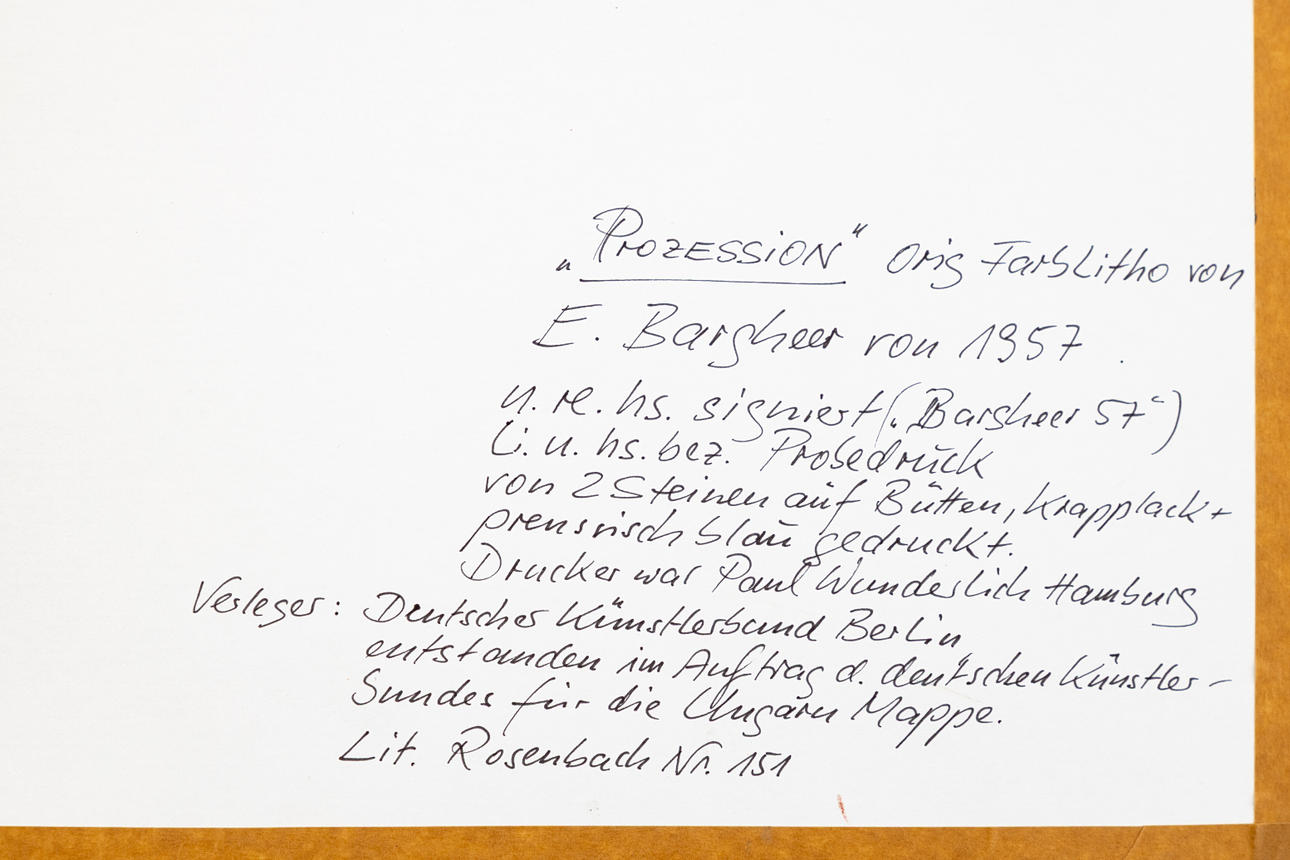 „PROZESSION“ Orig FarbLitho von
E. Bargheer von 1957
u. re. hs. signiert („Bargheer 57“)
Li. u. hs. bez. Probedruck
von 2 Steinen auf Bütten, Krapplack +
preussisch blau gedruckt.
Drucker war Paul Wunderlich Hamburg
Verleger: Deutscher Künstlerbund Berlin
entstanden im Auftrag d. deutschen Künstler-
bundes für die Ungarn Mappe.
Lit. Rosenbach Nr. 151